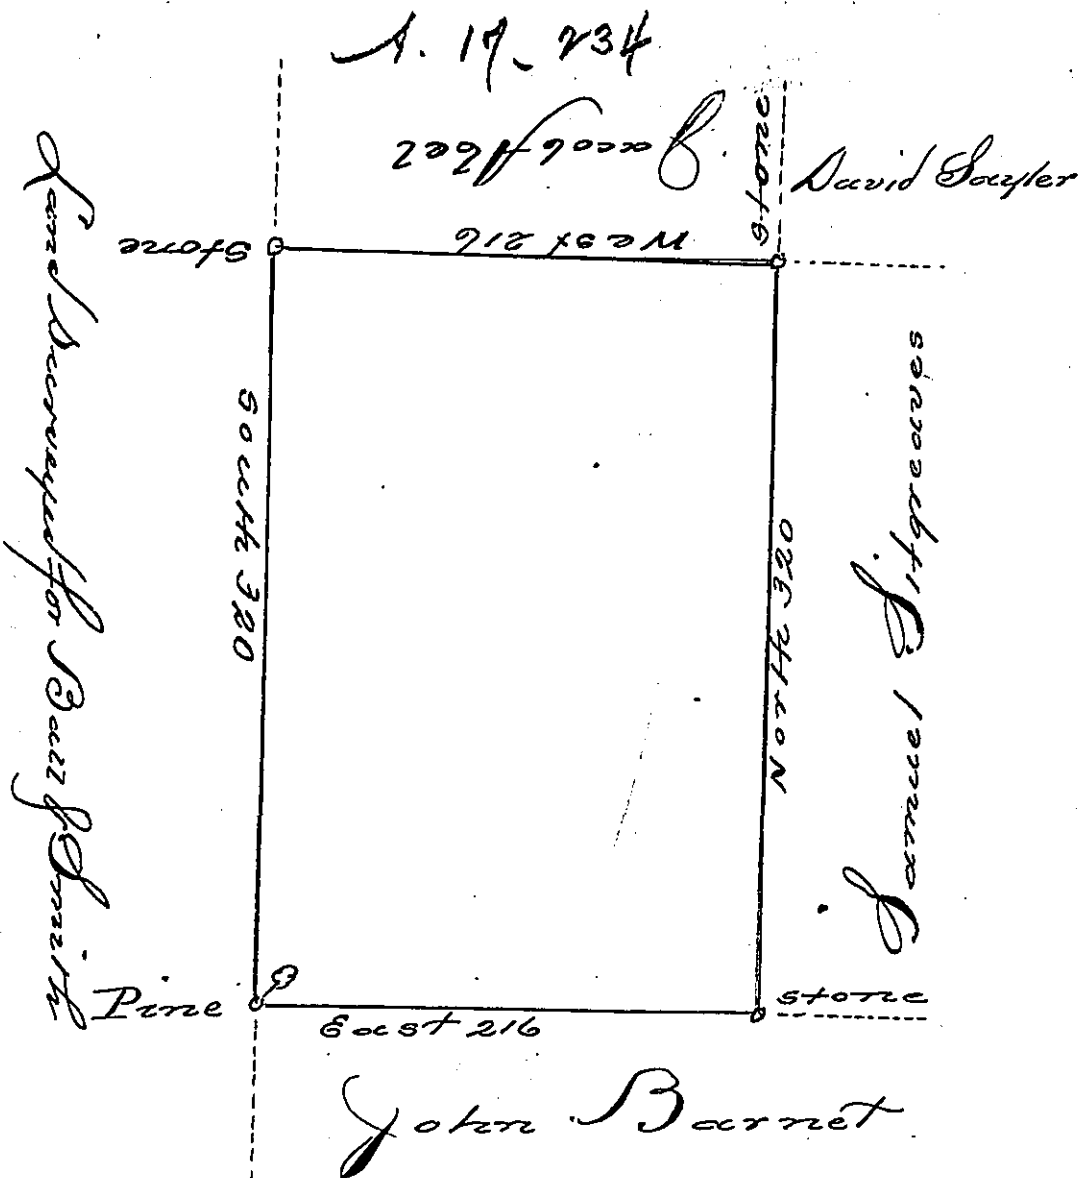 A. 17-234
Jacob Abel
Stone
David Sayler
Stone
West 216
Land Surveyed for Paul Smith
South 320
North 320
Samuel Sitgreaves
Pine
stone
East 216
John Barnet